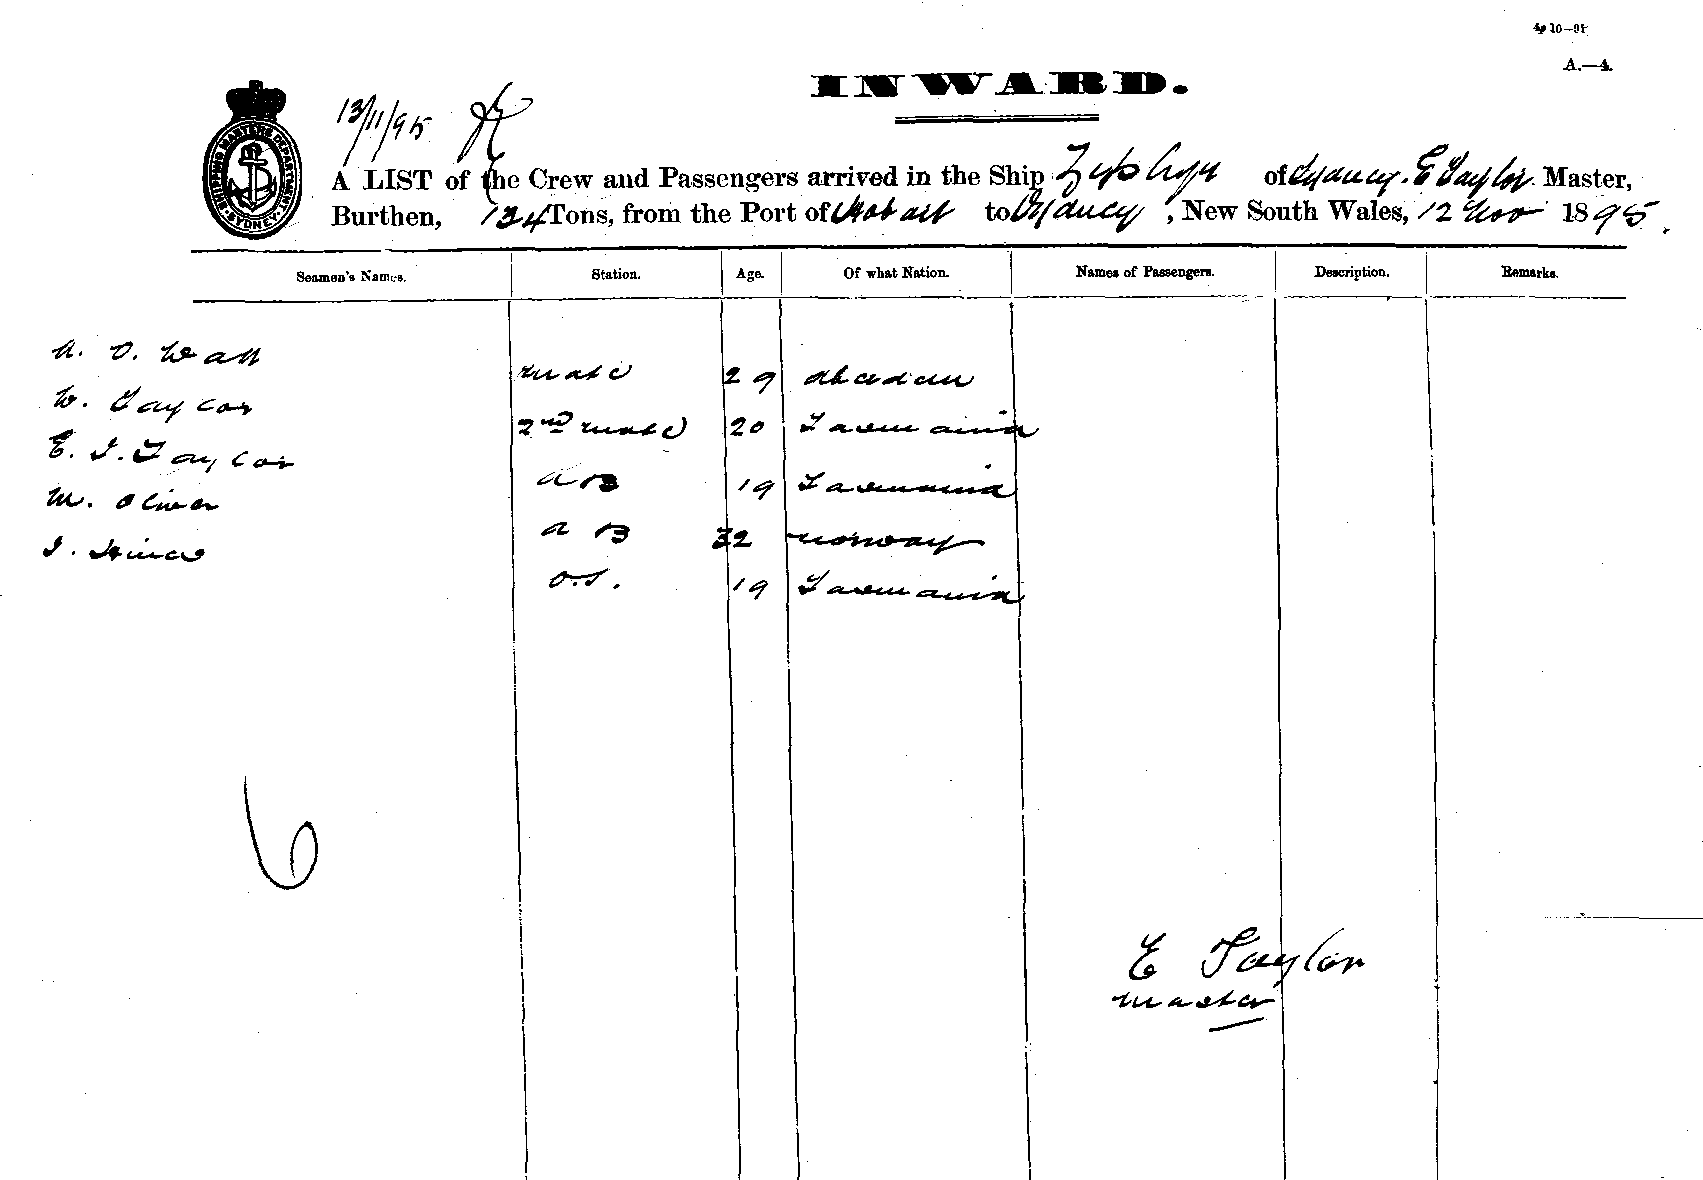 4p 10—95
A.—4.
INWARD.
SHIPPING MASTERS DEPARTMENT. SYDNEY.
13/11/95
A LIST of the Crew and Passengers arrived in the Ship Zephyr of Sydney. E Taylor Master,
Burthen, 134 Tons, from the Port of Hobart to Sydney, New South Wales, 12 Nov 1895.
Seamen's Names. Station. Age. Of what Nation. Names of Passengers. Description. Remarks.
A. O. Watt mate 29 Aberdeen
W. Taylor 2nd mate 20 Tasmania
E. J. Taylor A B 19 Tasmania
M. Oliver A B 32 Norway
J. O.S. 19 Tasmania
6
E Taylor
Master